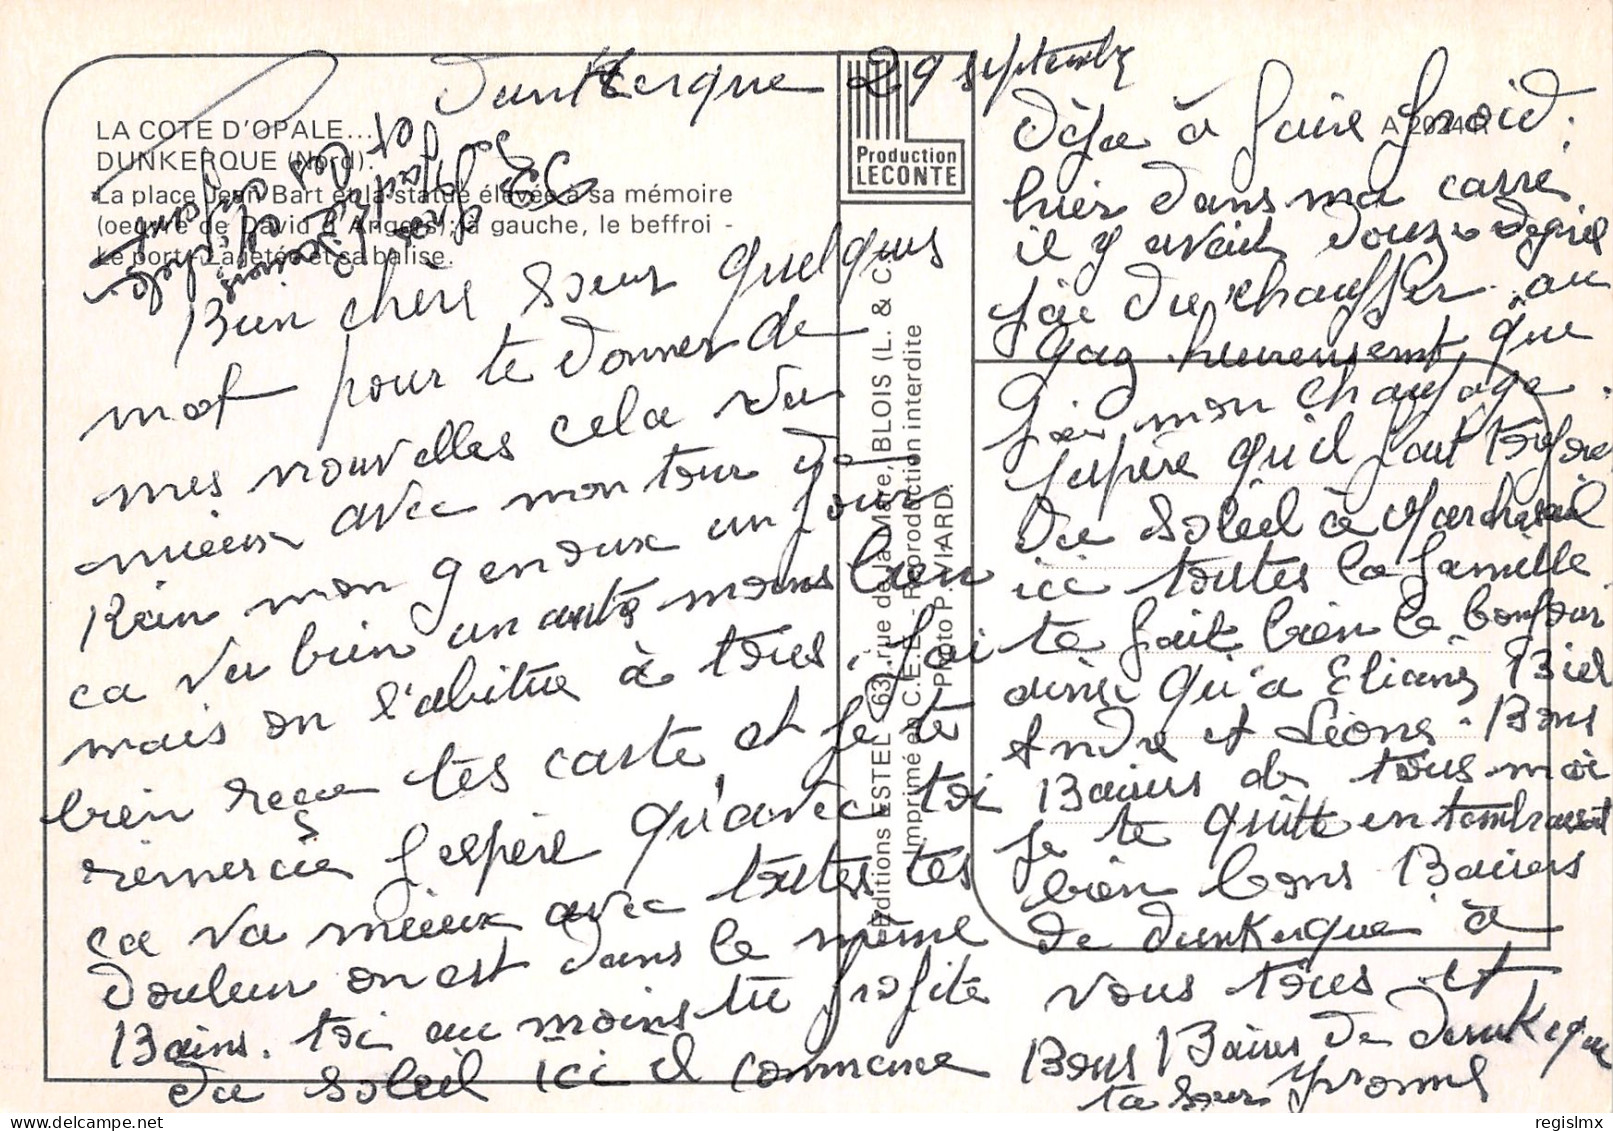 Dunkerque 29 septembre
LA COTE D'OPALE...
DUNKERQUE (Nord).
La place Jean Bart et la statue élevée à sa mémoire
(oeuvre de David d'Angers); à gauche, le beffroi -
Le port - La jetée et sa balise.
Production
LECONTE
A 2024 R
Editions ESTEL - 63, rue de la Mare, BLOIS (L. & C.)
Imprimé en C.E.E. - Reproduction interdite
Photo P. VIARD.
Bien chère Soeur quelques
mot pour te donner de
mes nouvelles cela va
mieux avec mon tour de
Rein mon genoux un jour
ça va bien un autre moins bien
mais on l'abitue à tous. J'ai
bien reçu tes carte et je te
remercie J'espère qu'avec toi
ça va mieux avec toutes tes
douleur on est dans le même
Bains. toi au moins tu profite
du Soleil ici il commence
déja à faire froid.
hier dans ma carré
il y avait douze degré
j'ai du chauffer au
gaz heureusemt que
j'ai mon chaufage.
J'espère qu'il fait toujours
du Soleil à
ici toutes la famille
te fait bien le bonjour
ainsi qu'a Eliane
Andre et Léone. Bons
Baisers de tous moi
je te quitte en tembrassat
bien bons Baisers
de Dunkerque à
vous tous et
Bons Baisers de Dunkerque
ta Soeur Yvonne
regislmx